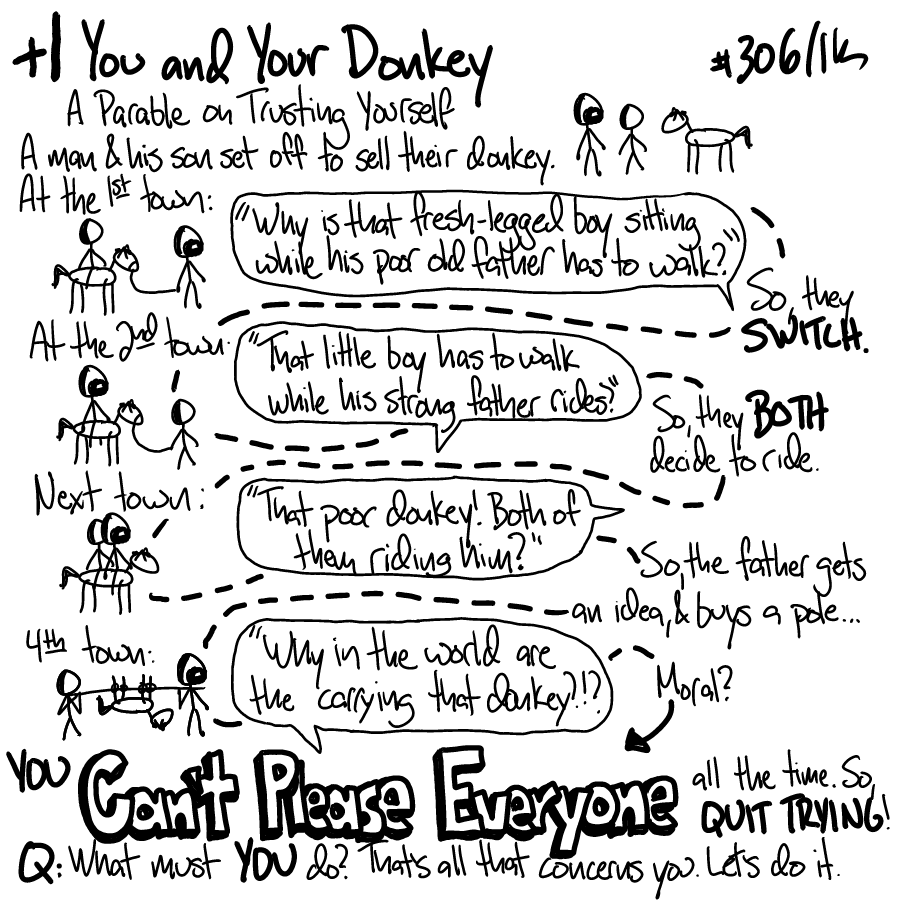 +1 You and Your Donkey
#306/1k
A Parable on Trusting Yourself
A man & his son set off to sell their donkey.
At the 1st town:
"Why is that fresh-legged boy sitting
while his poor old father has to walk?"
So, they
SWITCH.
At the 2nd town:
"That little boy has to walk
while his strong father rides?"
So, they BOTH
decide to ride.
Next town:
"That poor donkey! Both of
them riding him?"
So, the father gets
an idea, & buys a pole...
4th town:
"Why in the world are
the carrying that donkey?!!?
Moral?
YOU Can't Please Everyone
all the time. So,
QUIT TRYING!
Q: What must YOU do? That's all that concerns you. Let's do it.